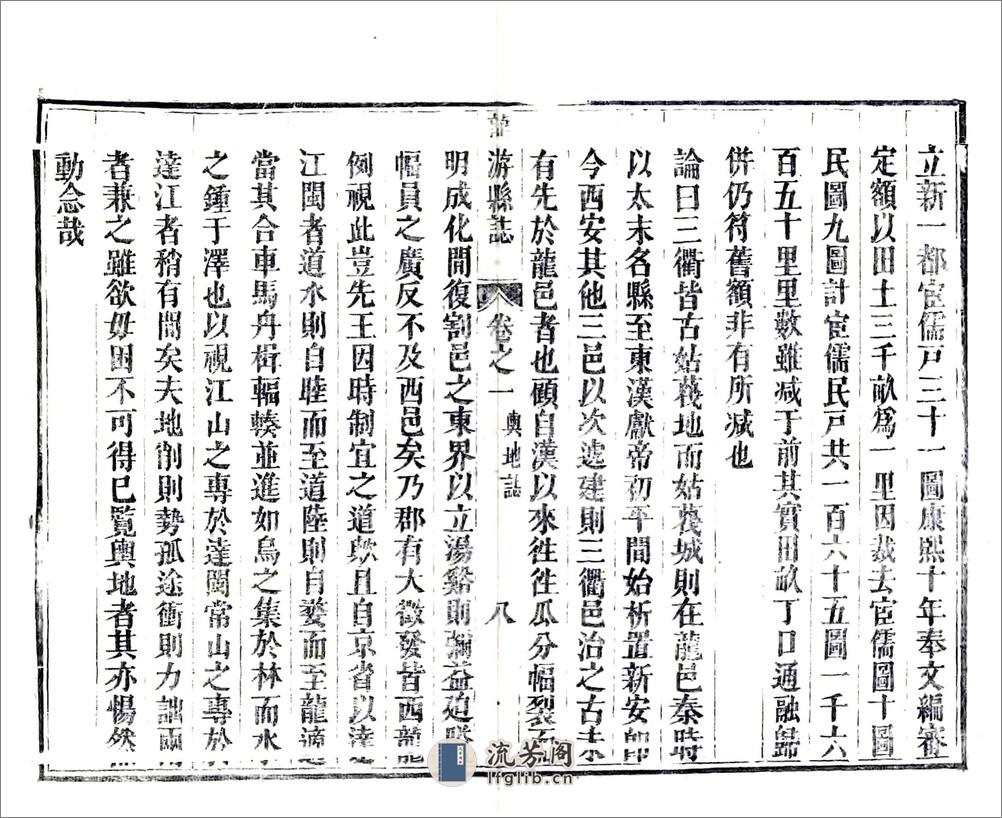 立新一都宦儒戸三十一圖康熙十年奉文編審
定額以田土三千畝爲一里因裁去宦儒圖十圖
民圖九圖計宦儒民戸共一百六十五圖一千六
百五十里里數雖減于前其實田畝丁口通融歸
併仍符舊額非有所減也
論曰三衢皆古姑蔑地而姑蔑城則在龍邑秦時
以太末名縣至東漢獻帝初平間始析置新安卽
今西安其他三邑以次遞建則三衢邑治之古未
有先於龍邑者也顧自漢以來徃徃瓜分幅裂
游縣誌 卷之一 輿地誌 八
明成化間復割邑之東界以立湯谿則彌益迫
幅員之廣反不及西邑矣乃郡有大徵發皆西龍
例視此豈先王因時制宜之道歟且自京省以達
江閩者道水則自睦而至道陸則自婺而至龍適
當其合車馬舟楫輻輳並進如鳥之集於林而水
之鍾于澤也以視江山之專於達閩常山之專於
達江者稍有間矣夫地削則勢孤途衝則力詘兩
者兼之雖欲毋困不可得已覧輿地者其亦惕然
動念哉
流芳阁
lfglib.cn